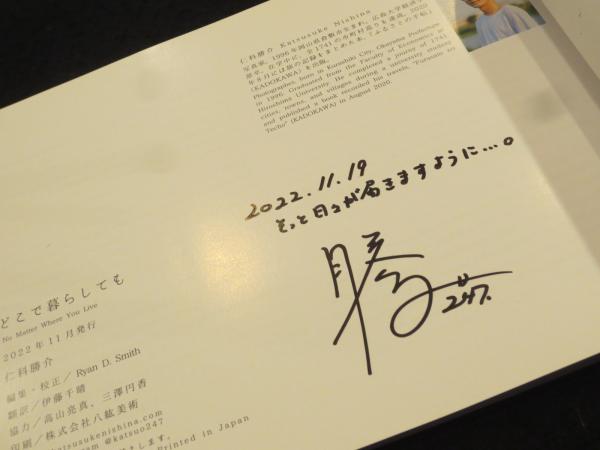 仁科勝介 Katsusuke Nishina
写真家。1996年岡山県倉敷市生まれ。広島大学経済学
部卒。在学中に、全1741の市町村巡りを達成。2020
年8月には旅の記録をまとめた本、『ふるさとの手帖』
(KADOKAWA)を出版。
Photographer, born in Kurashiki City, Okayama Prefecture
in 1996. Graduated from the Faculty of Economics at
Hiroshima University. He completed a journey of 1741
cities, towns, and villages, during a university student
and published a book recorded his travels, "Furusato no
Techo" (KADOKAWA) in August 2020.
2022.11.19
そっと日々が届きますように…。
勝
247.
どこで暮らしても
No Matter Where You Live
2022年11月発行
仁科勝介
編集・校正/Ryan D. Smith
翻訳/伊藤千晴
協力/高山亮真、三澤円香
印刷/株式会社八紘美術
katsusukenishina.com
@katsuo247
します。
Printed in Japan